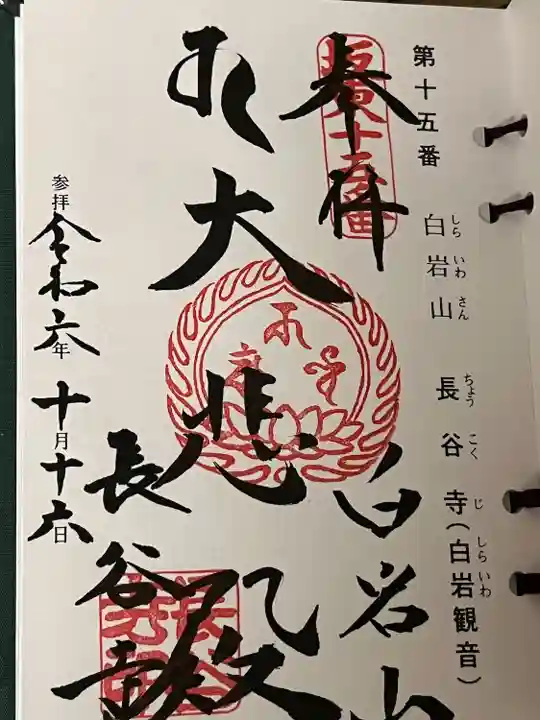 第十五番
白岩山
しら いわ さん
長谷寺(白岩観音)
ちょう こく じ しら いわ
奉拝
白岩山
大悲殿
長谷寺
参拝 令和六年 十月十六日